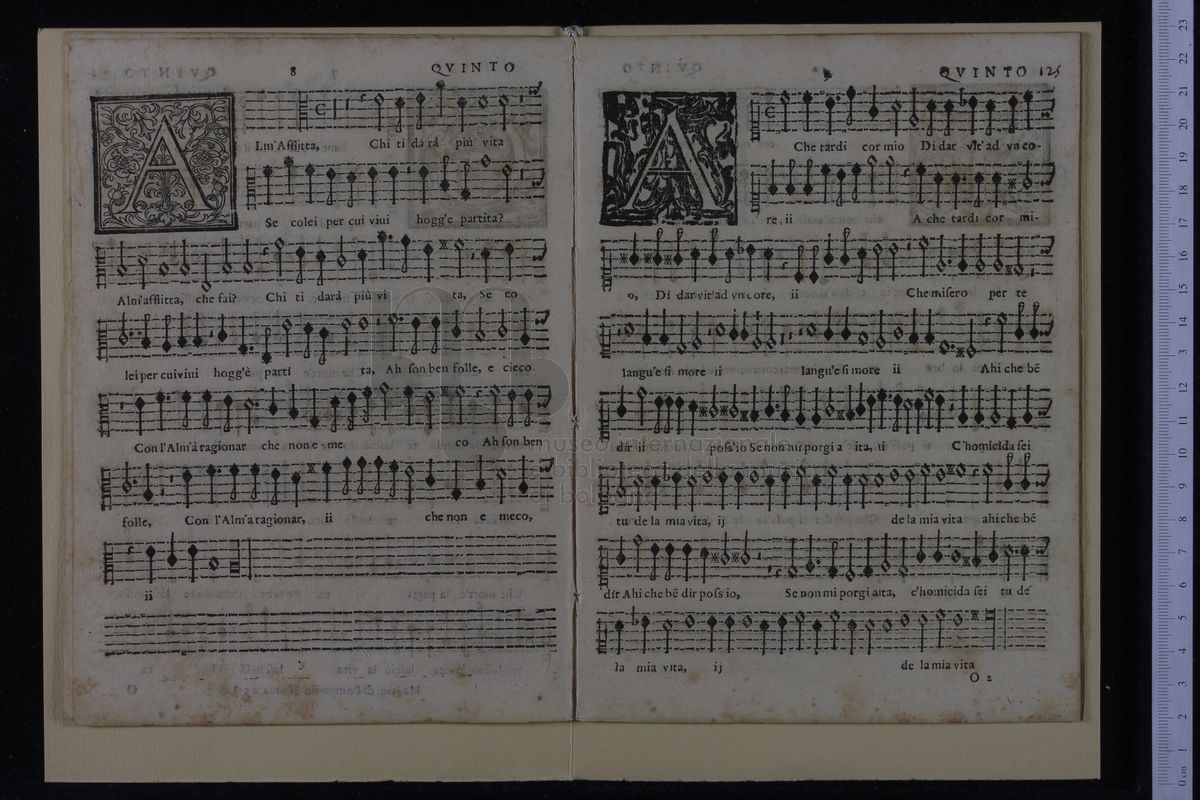 8 QVINTO
A
Lm'Afflitta, Chi ti darà più vita
Se colei per cui viui hogg'e partita?
Alm'afflitta, che fai? Chi ti darà più vi ta, Se co
lei per cui viui hogg'è parti ta, Ah son ben folle, e cieco
Con l'Alm'à ragionar che non e me co Ah son ben
folle, Con l'Alm'a ragionar, ii che non e meco,
ii
QVINTO 125
A
Che tardi cor mio Di dar vit'ad vn co-
re, ii A che tardi cor mi-
o, Di dar vit'ad vn core, ii Che misero per te
langu'e si more ii langu'e si more ii Ahi che bẽ
dir ii poss'io Se non mi porgi a ita, ii C'homicida sei
tu de la mia vita, ij de la mia vita ahi che bẽ
dir Ahi che bẽ dir poss io, Se non mi porgi aita, c'homicida sei tu de
la mia vita, ij de la mia vita
O 2
museo internazionale
biblioteca della musica
bologna